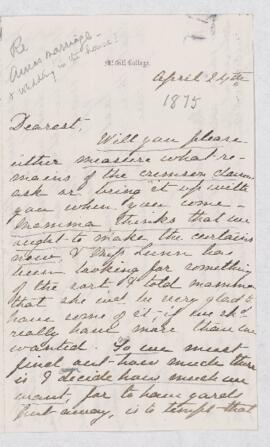 Re
Anna's marriage -
& wedding in the house?
McGill College.
April 24th
1875
Dearest,
Will you please
either measure what re-
mains of the crimson
ask or bring it up with
you when you come -
Mamma thinks that we
ought to make the curtains
now, & Miss Lunn has
been looking for something
of the sort & told mamma
that she wd. be very glad to
have some of it, if we shd.
really have more than we
wanted. So we must
find out how much there
is & decide how much we
want, for to have yards
put away, is to tempt that